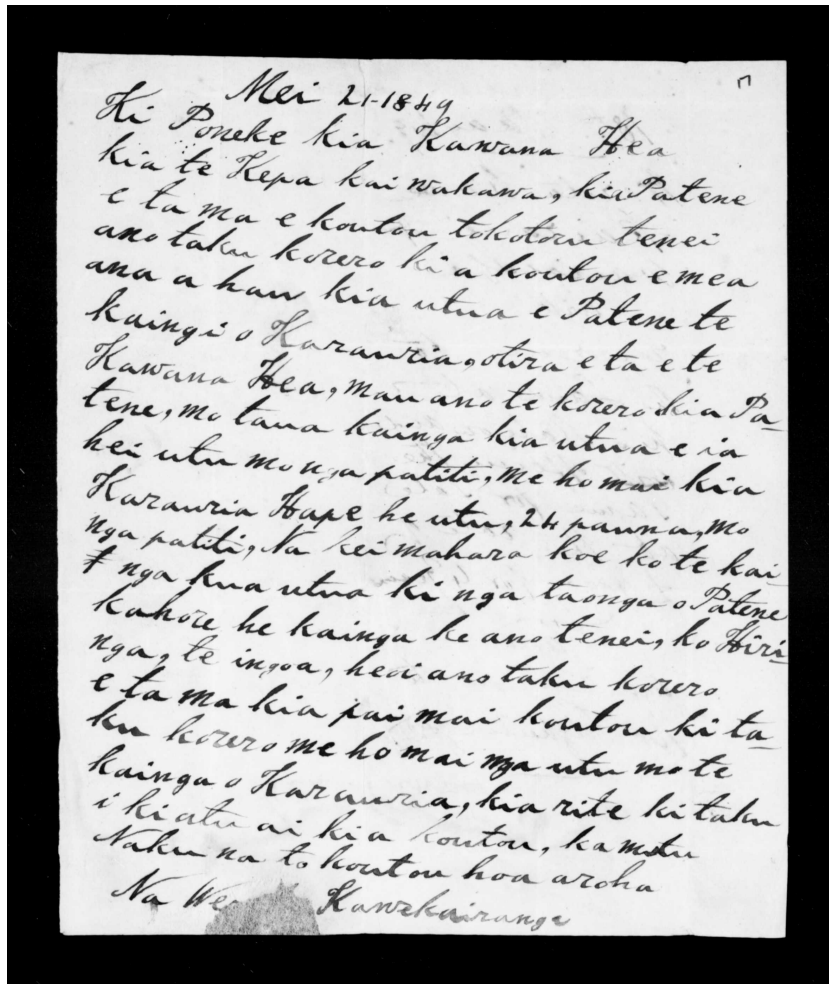 Mei 21-1849
Ki Poneke kia Kawana Hea
kia te Kepa kai wakawa, kia Patene
e ta ma e koutou tokotoru tenei
ano taku korero kia koutou e mea
ana a hau kia utua e Patene te
kaingi o Karauria, otira e ta e te
Kawana Hea, mau ano te korero kia Pa-
tene, mo taua kainga kia utua e ia
hei utu mo nga patiti, me homai kia
Karauria Hape he utu, 24 pauna, mo
nga patiti, Na kei mahara koe ko te kai-
nga kua utua ki nga taonga o Patene
kahore he kainga ke ano tenei, ko Hiri-
nga, te ingoa, heoi ano taku korero
e ta ma kia pai mai koutou ki ta-
ku korero me homai nga utu mo te
kainga o Karauria, kia rite ki taku
i ki atu ai kia koutou, ka mutu
Naku na to koutou hoa aroha
Na Kawekairange